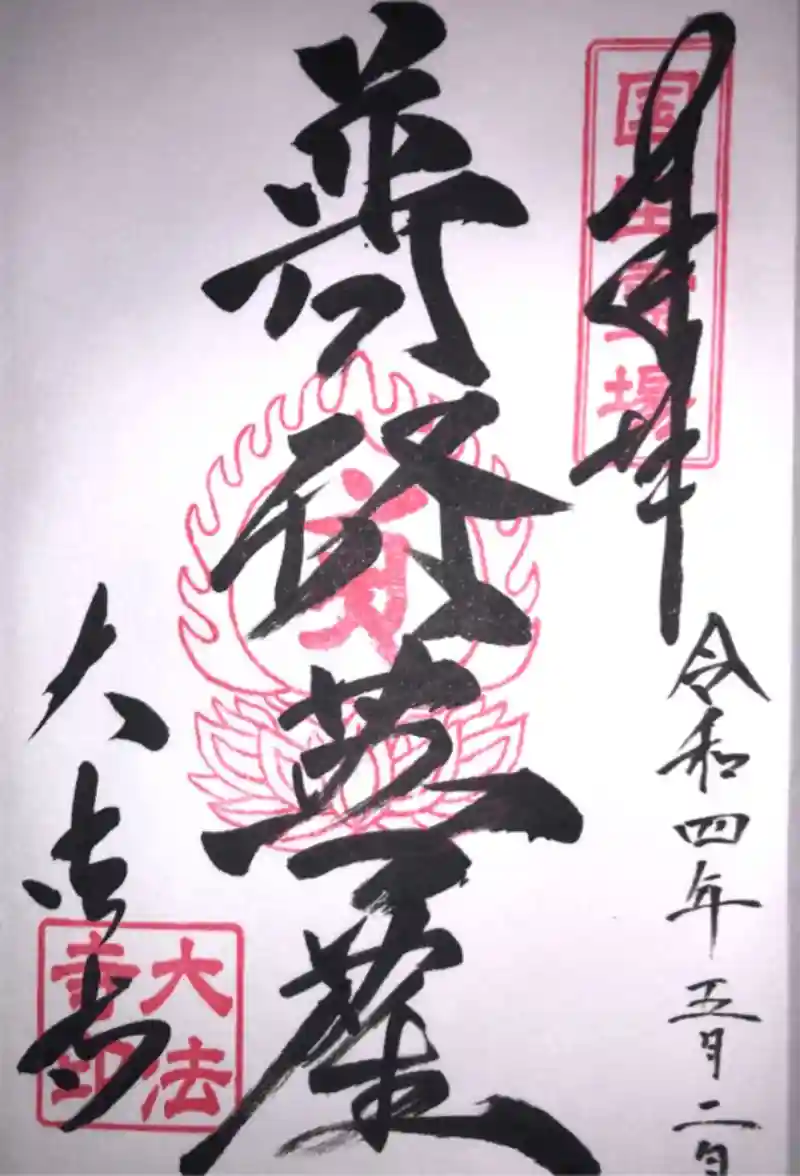 国生霊場
奉拝
令和四年五月二日
普賢菩薩
大法寺
大法
寺印